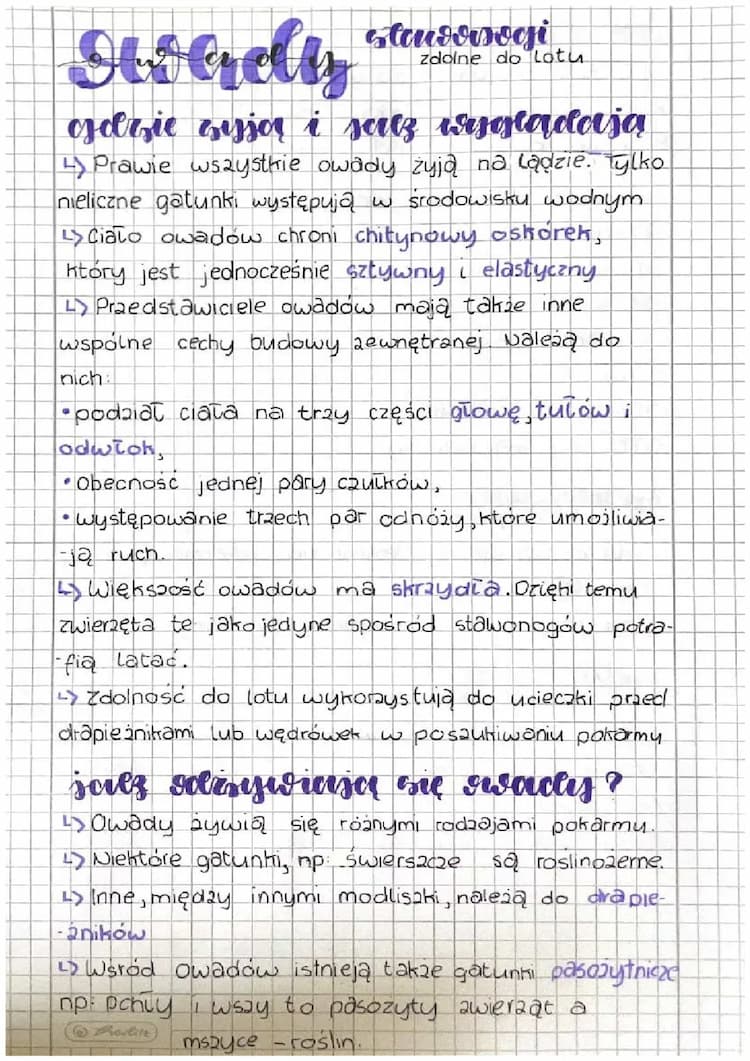 owady stawonogi
zdolne do lotu
gdzie żyją i jak wyglądają
↳ Prawie wszystkie owady żyją na lądzie. Tylko
nieliczne gatunki występują w środowisku wodnym
↳ Ciało owadów chroni chitynowy oskórek,
który jest jednocześnie sztywny i elastyczny
↳ Przedstawiciele owadów mają także inne
wspólne cechy budowy zewnętrznej. Należą do
nich:
• podział ciała na trzy części głowę, tułów i
odwłok,
• Obecność jednej pary czułków,
• występowanie trzech par odnóży, które umożliwia-
-ją ruch.
↳ Większość owadów ma skrzydła. Dzięki temu
zwierzęta te jako jedyne spośród stawonogów potra-
-fią latać.
↳ Zdolność do lotu wykorzystują do ucieczki przed
drapieżnikami lub wędrówek w poszukiwaniu pokarmy
jak odżywiają się owady?
↳ Owady żywią się różnymi rodzajami pokarmu.
↳ Niektóre gatunki, np: świerszcze są roślinożerne.
↳ Inne, między innymi modliszki, należą do drapie-
-żników
↳ Wśród owadów istnieją także gatunki pasożytnicze
np: pchły i wszy to pasożyty zwierząt a
mszyce - roślin.